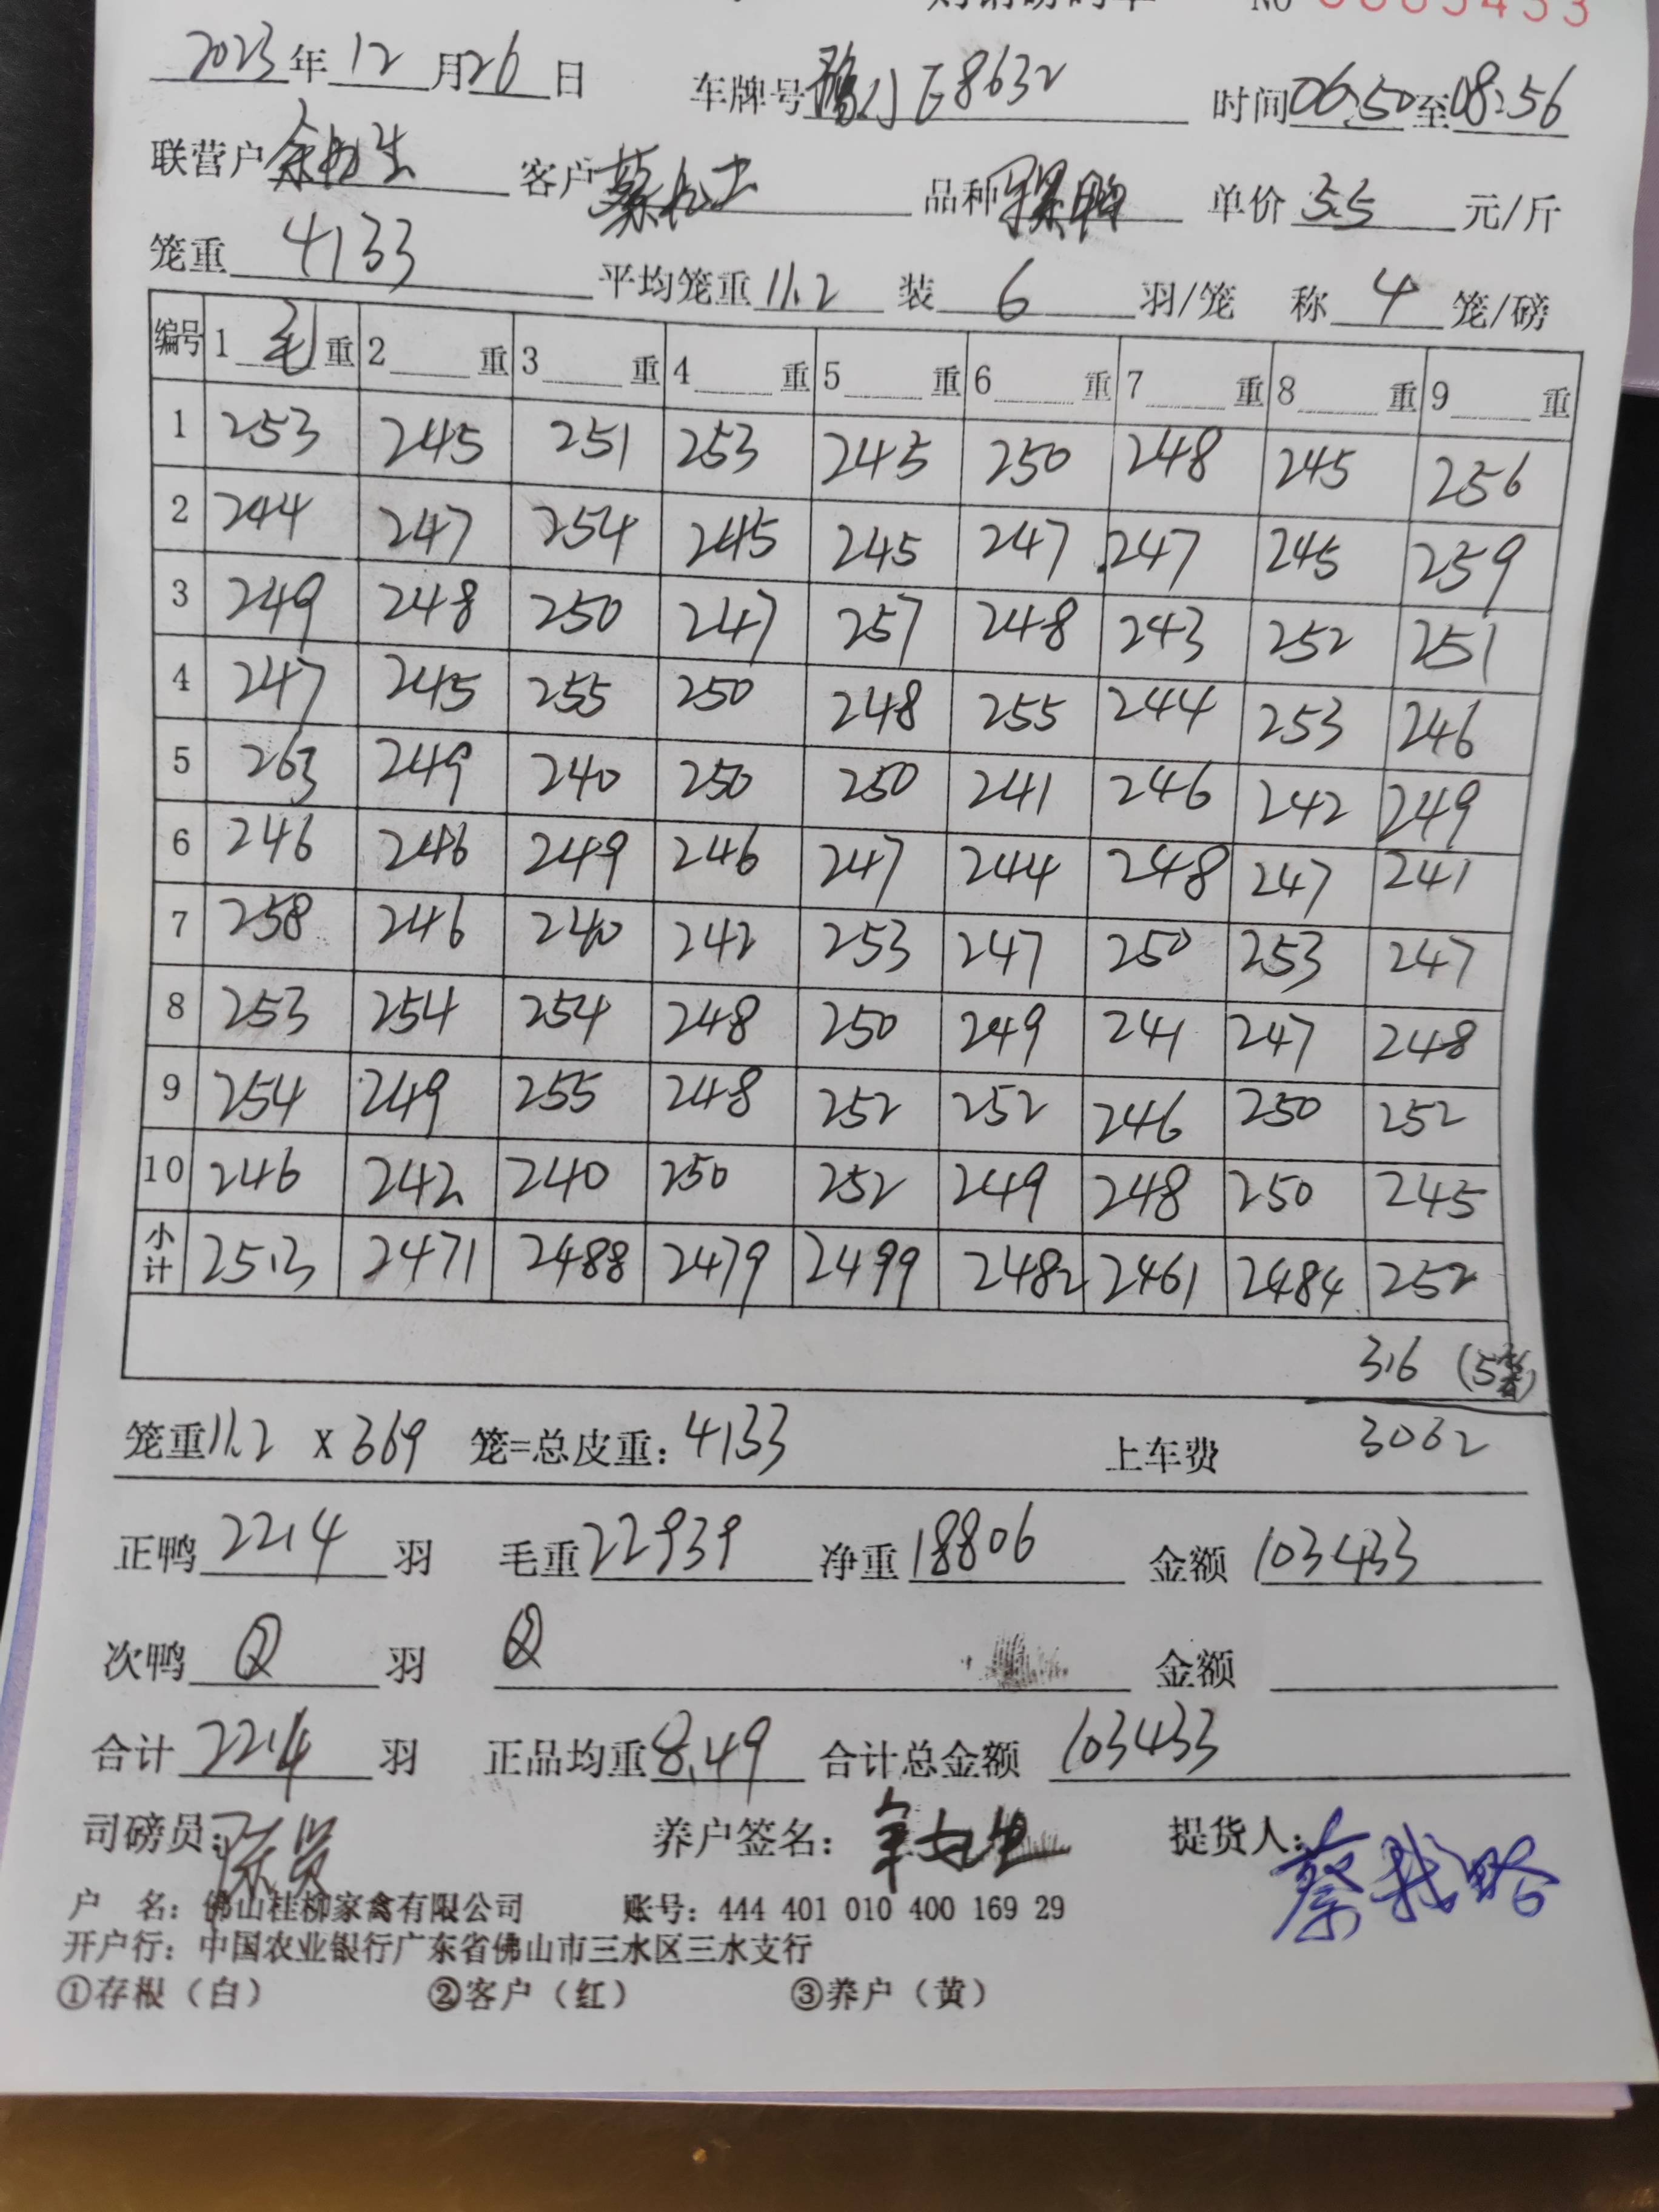 NO 0005433
2023年12月26日 车牌号 E8632 时间06:50至08:56
联营户 客户蔡 品种 单价5.5元/斤
笼重4133 平均笼重11.2 装6羽/笼 称4笼/磅
编号 1毛重 2重 3重 4重 5重 6重 7重 8重 9重
1 253 245 251 253 245 250 248 245 256
2 244 247 254 245 245 247 247 245 259
3 249 248 250 247 257 248 243 252 251
4 247 245 255 250 248 255 244 253 246
5 263 249 240 250 250 241 246 242 249
6 246 246 249 246 247 244 248 247 241
7 258 246 240 242 253 247 250 253 247
8 253 254 254 248 250 249 241 247 248
9 254 249 255 248 252 252 246 250 252
10 246 242 240 250 252 249 248 250 245
小计 2513 2471 2488 2479 2499 2482 2461 2484 252
316 (5笼)
笼重11.2 x 369 笼=总皮重：4133 上车费 3062
正鸭2214羽 毛重22939 净重18806 金额103433
次鸭 羽 金额
合计2214羽 正品均重8.49 合计总金额103433
司磅员： 养户签名： 提货人：蔡
户 名：佛山桂柳家禽有限公司 账号：444 401 010 400 169 29
开户行：中国农业银行广东省佛山市三水区三水支行
①存根（白） ②客户（红） ③养户（黄）